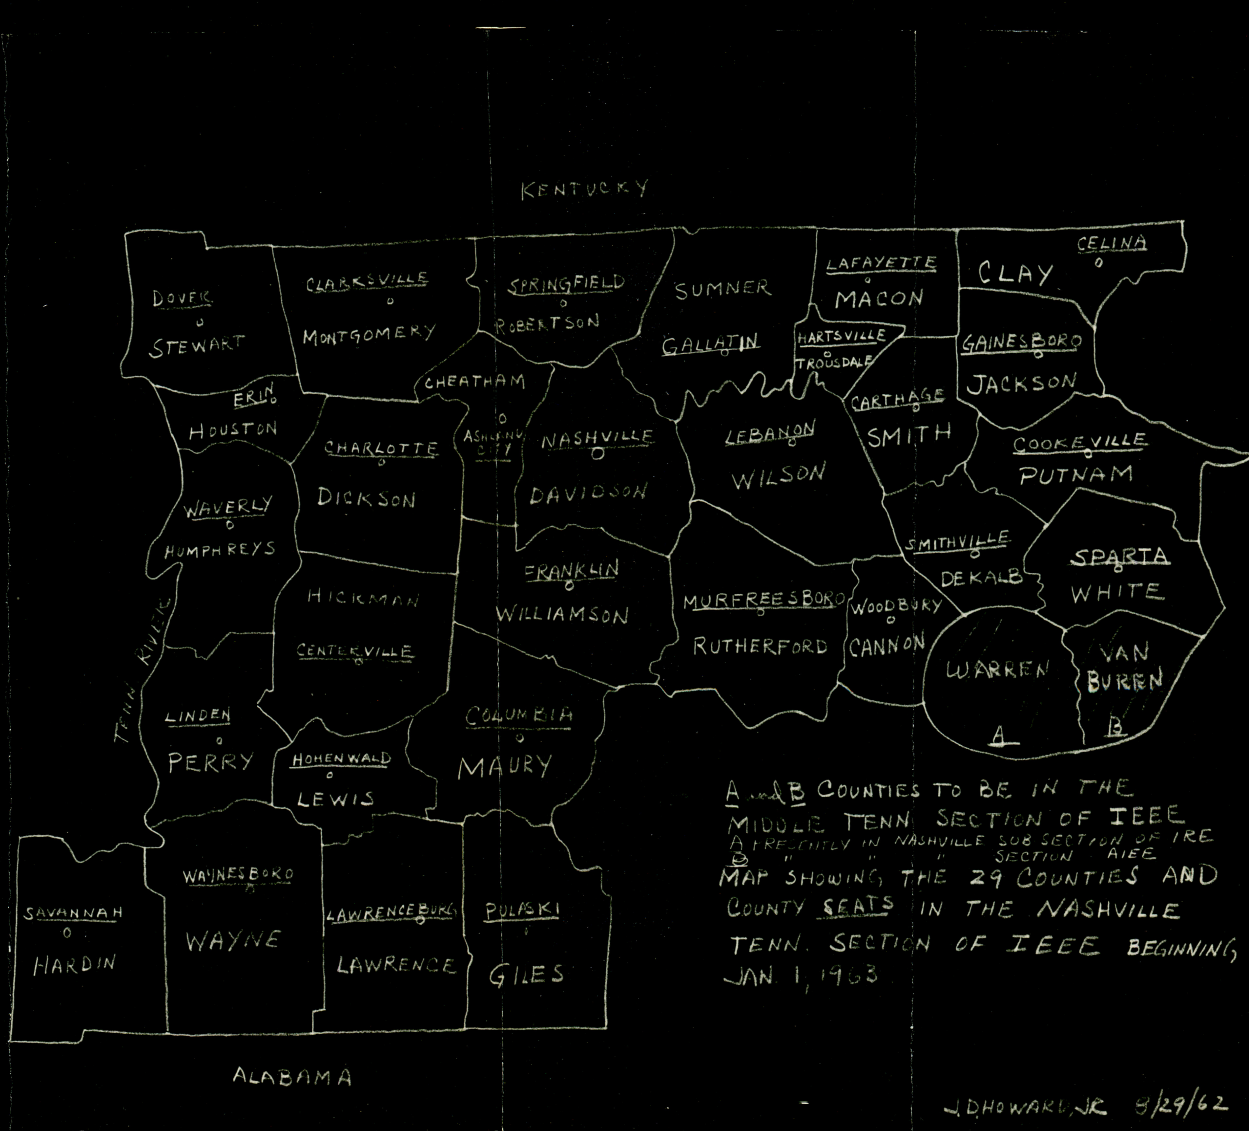 KENTUCKY
DOVER
STEWART
CLARKSVILLE
MONTGOMERY
SPRINGFIELD
ROBERTSON
SUMNER
GALLATIN
LAFAYETTE
MACON
HARTSVILLE
TROUSDALE
CELINA
CLAY
GAINESBORO
JACKSON
ERIN
HOUSTON
CHEATHAM
ASHLAND
CITY
CHARLOTTE
DICKSON
NASHVILLE
DAVIDSON
LEBANON
WILSON
CARTHAGE
SMITH
COOKEVILLE
PUTNAM
WAVERLY
HUMPHREYS
HICKMAN
CENTERVILLE
FRANKLIN
WILLIAMSON
MURFREESBORO
RUTHERFORD
WOODBURY
CANNON
SMITHVILLE
DEKALB
SPARTA
WHITE
WARREN
A
VAN
BUREN
B
TENN RIVER
LINDEN
PERRY
HOHENWALD
LEWIS
COLUMBIA
MAURY
SAVANNAH
HARDIN
WAYNESBORO
WAYNE
LAWRENCEBURG
LAWRENCE
PULASKI
GILES
A and B COUNTIES TO BE IN THE
MIDDLE TENN. SECTION OF IEEE
A PRESENTLY IN NASHVILLE SUB SECTION OF IRE
B " " " SECTION AIEE
MAP SHOWING THE 29 COUNTIES AND
COUNTY SEATS IN THE NASHVILLE
TENN. SECTION OF IEEE BEGINNING
JAN. 1, 1963
ALABAMA
J.D. HOWARD, JR 8/29/62